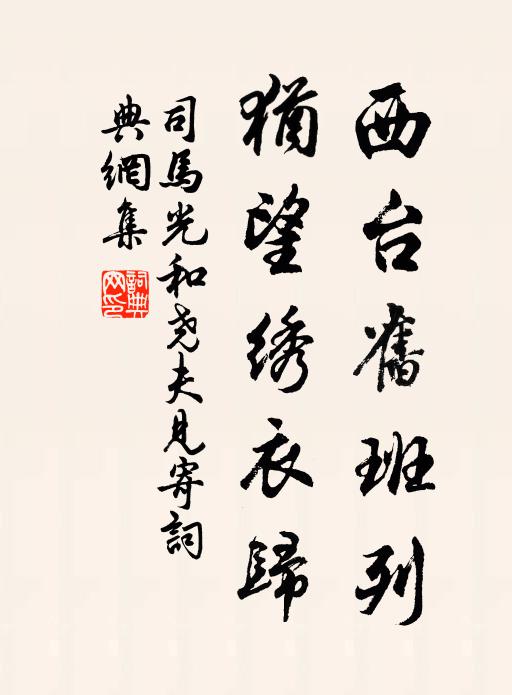 西台舊班列
猶望綉衣歸
司馬光和堯夫見寄詞
典網集
詞典網印